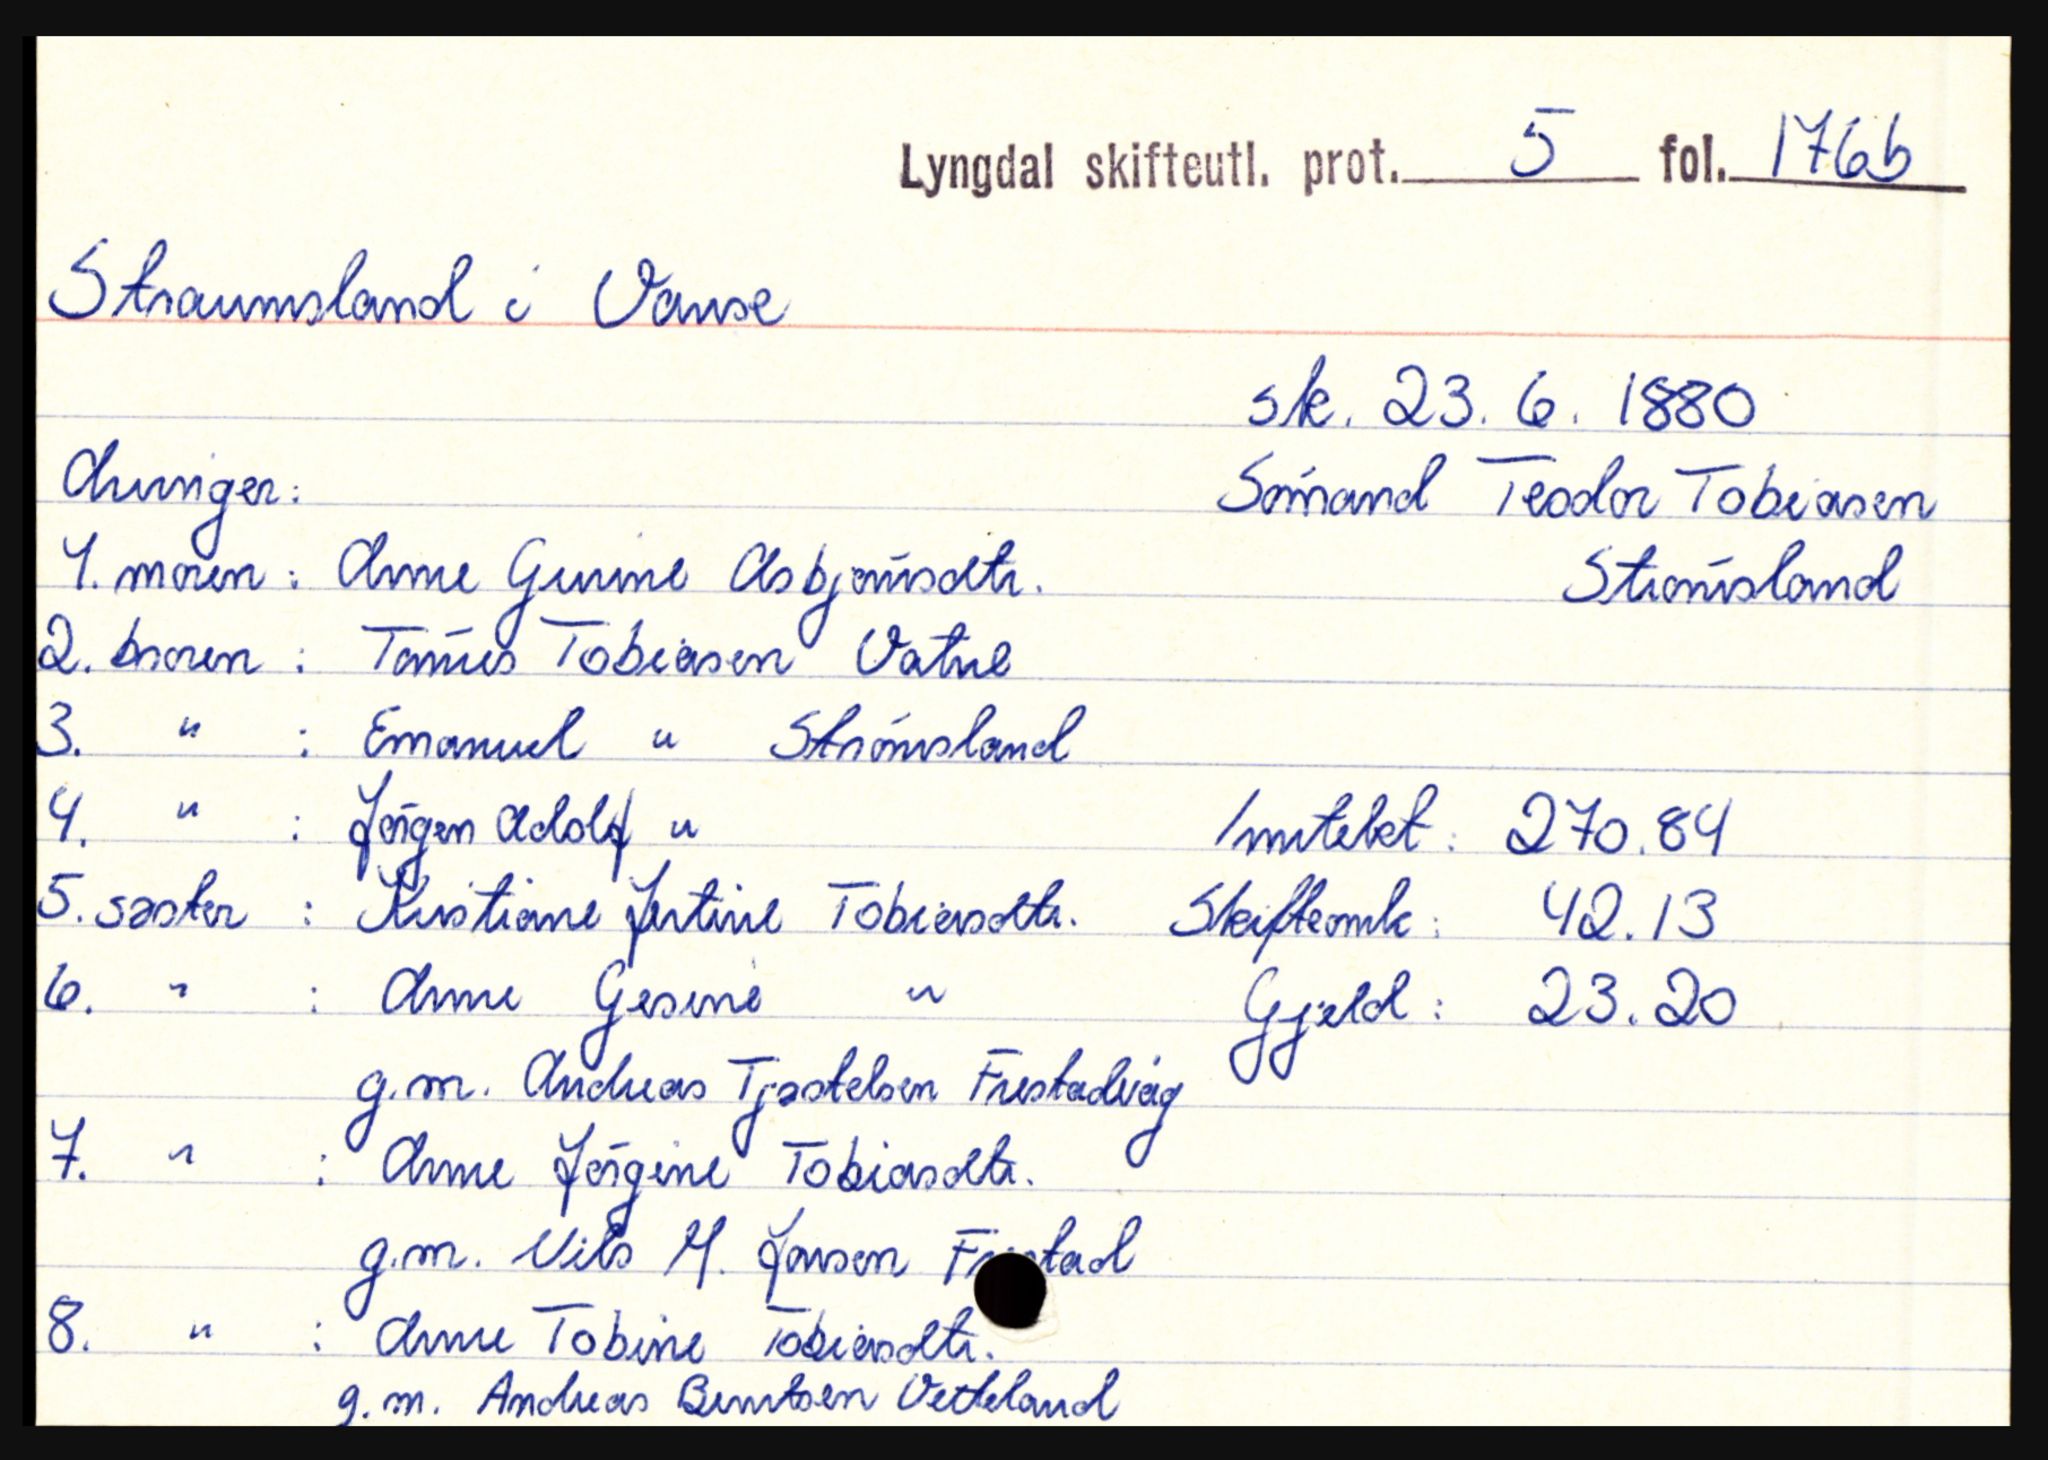 Lyngdal skifteutl. prot. 5 fol. 176b
Straumsland i Vanse
sk. 23. 6. 1880
Arvinger: Sømand Teodor Tobiasen
1. moren : Anne Gurine Asbjørnsdtr. Strømsland
2. broren : Tønnes Tobiasen Vatne
3. " : Emanuel " Strømsland
4. " : Jørgen Adolf " Inntekt : 270.84
5. søster : Kristiane Jertine Tobiasdtr. Skifteomk : 42.13
6. " : Anne Gesine " Gjeld : 23.20
g.m. Andreas Tjøstelsen Frestadvåg
7. " : Anne Jørgine Tobiasdtr.
g.m. Nils M. Jonsen Frestad
8. " : Anne Tobine Tobiasdtr.
g.m. Andreas Berntsen Vetteland